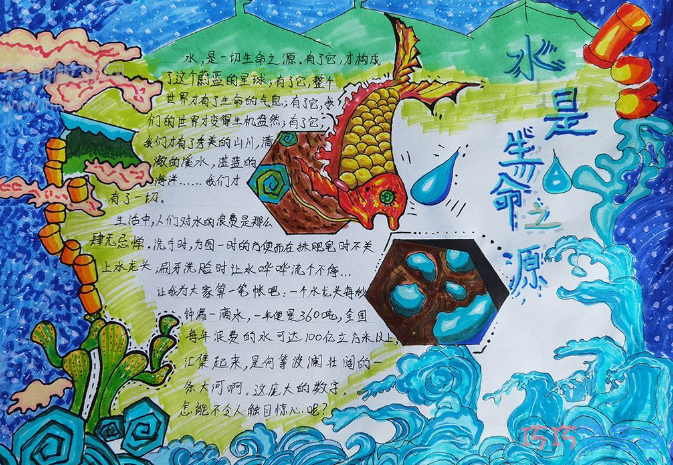 水是生命之源
水,是一切生命之源。有了它,才构成
了这个蔚蓝的星球;有了它,整个
世界才有了生命的气息;有了它,我
们的世界才变得生机盎然;有了它,
我们才有了秀美的山川,清
澈的溪水,湛蓝的
海洋……我们才
有了一切。
生活中,人们对水的浪费是那么
肆无忌惮。洗手时,为图一时的方便而在抹肥皂时不关
上水龙头,刷牙洗脸时让水哗哗流个不停…
让我为大家算一笔帐吧:一个水龙头每秒
钟漏一滴水,一年便是360吨,全国
每年浪费的水可达100亿立方米以上,
汇集起来,是何等波澜壮阔的一
条大河啊。这庞大的数字,
怎能不令人触目惊心呢?
巧巧